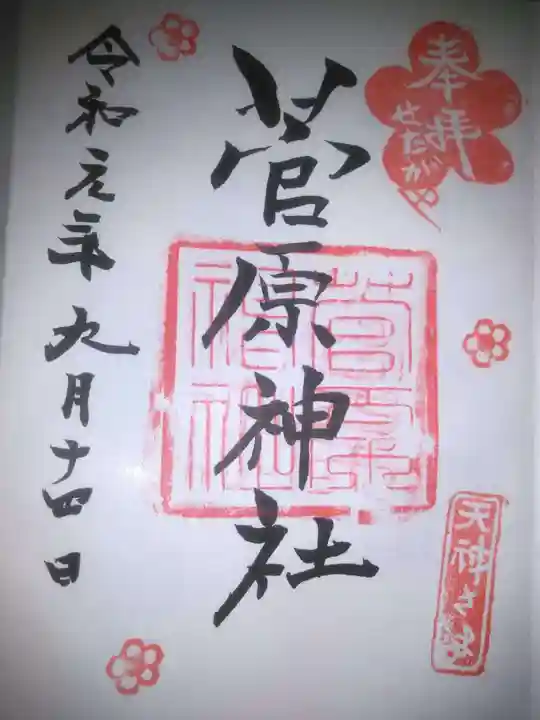 奉拝
せたがや
菅原神社
菅原
神社
天神さま
令和元年九月十四日